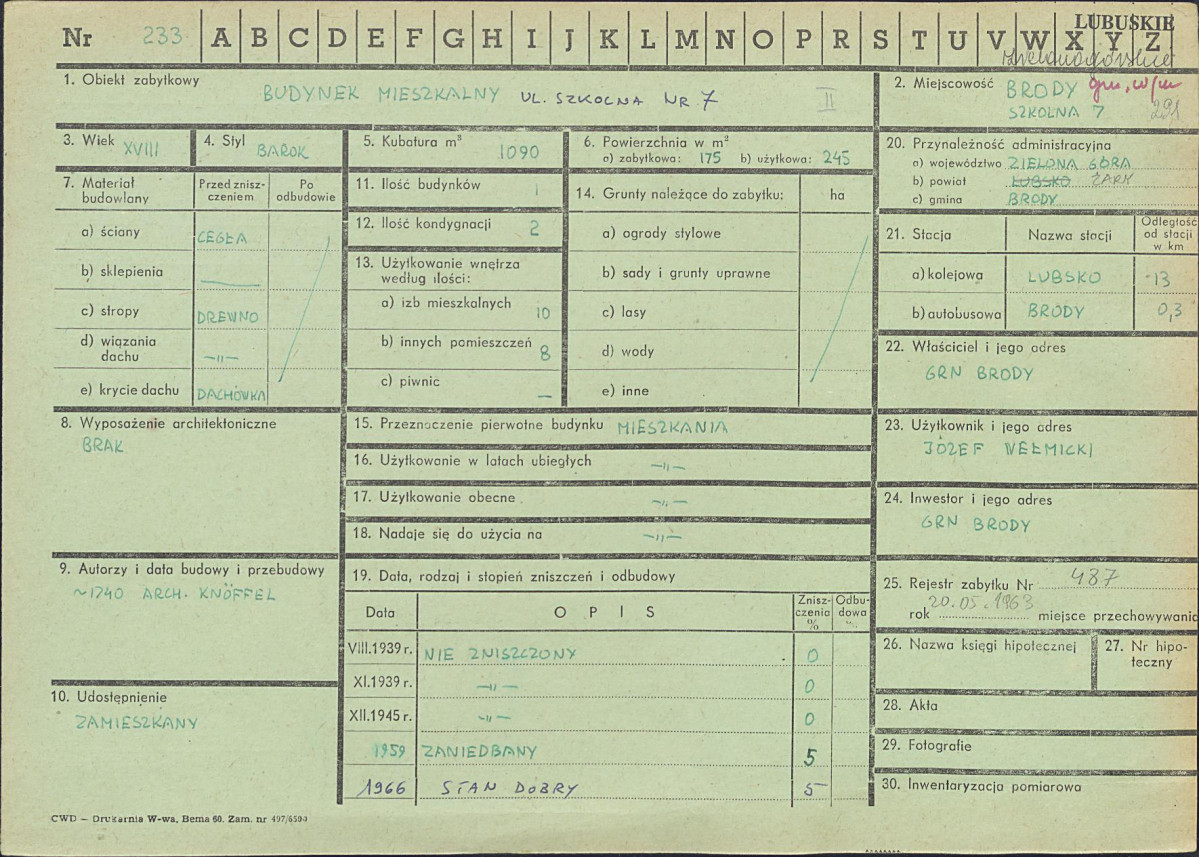 LUBUSKIE
Nr 233 A B C D E F G H I J K L M N O P R S T U V W X Y Z
1. Obiekt zabytkowy
BUDYNEK MIESZKALNY UL. SZKOLNA NR 7 II
2. Miejscowość BRODY
SZKOLNA 7 291
3. Wiek XVIII
4. Styl BAROK
5. Kubatura m³ 1090
6. Powierzchnia w m²
a) zabytkowa: 175 b) użytkowa: 245
20. Przynależność administracyjna
a) województwo ZIELONA GÓRA
b) powiat LUBSKO ŻARY
c) gmina BRODY
7. Materiał budowlany
Przed zniszczeniem
Po odbudowie
a) ściany CEGŁA
b) sklepienia —
c) stropy DREWNO
d) wiązania dachu —"—
e) krycie dachu DACHÓWKA
11. Ilość budynków 1
12. Ilość kondygnacji 2
13. Użytkowanie wnętrza
według ilości:
a) izb mieszkalnych 10
b) innych pomieszczeń 8
c) piwnic —
14. Grunty należące do zabytku: ha
a) ogrody stylowe
b) sady i grunty uprawne
c) lasy
d) wody
e) inne
21. Stacja Nazwa stacji Odległość od stacji w km
a) kolejowa LUBSKO 13
b) autobusowa BRODY 0,3
22. Właściciel i jego adres
GRN BRODY
8. Wyposażenie architektoniczne
BRAK
15. Przeznaczenie pierwotne budynku MIESZKANIA
16. Użytkowanie w latach ubiegłych —"—
17. Użytkowanie obecne —"—
18. Nadaje się do użycia na —"—
23. Użytkownik i jego adres
JÓZEF WEŁMICKI
24. Inwestor i jego adres
GRN BRODY
9. Autorzy i data budowy i przebudowy
~1740 ARCH. KNÖFFEL
19. Data, rodzaj i stopień zniszczeń i odbudowy
Data OPIS Zniszczenia % Odbudowa %
VIII.1939 r. NIE ZNISZCZONY 0
XI.1939 r. —"— 0
XII.1945 r. —"— 0
1959 ZANIEDBANY 5
1966 STAN DOBRY 5
25. Rejestr zabytku Nr 487
rok 20.05.1963 miejsce przechowywania
26. Nazwa księgi hipotecznej
27. Nr hipoteczny
10. Udostępnienie
ZAMIESZKANY
28. Akta
29. Fotografie
30. Inwentaryzacja pomiarowa
CWD — Drukarnia W-wa, Bema 60. Zam. nr 497/6500